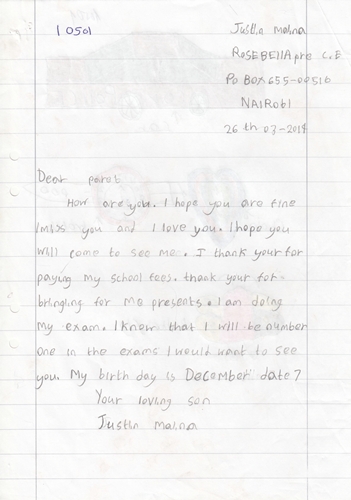 10501
Justin Maina
ROSEBELLA pre C.E
PO BOX 655-00516
NAIROBI
26th 03-2014
Dear parot
How are you. I hope you are fine
I miss you and I love you. I hope you
will come to see me. I thank your for
paying my school fees. thank your for
bringling for me presents. I am doing
My exam. I know that I will be number
one in the exams I would want to see
you. My birth day is December date 7
Your loving son
Justin Maina